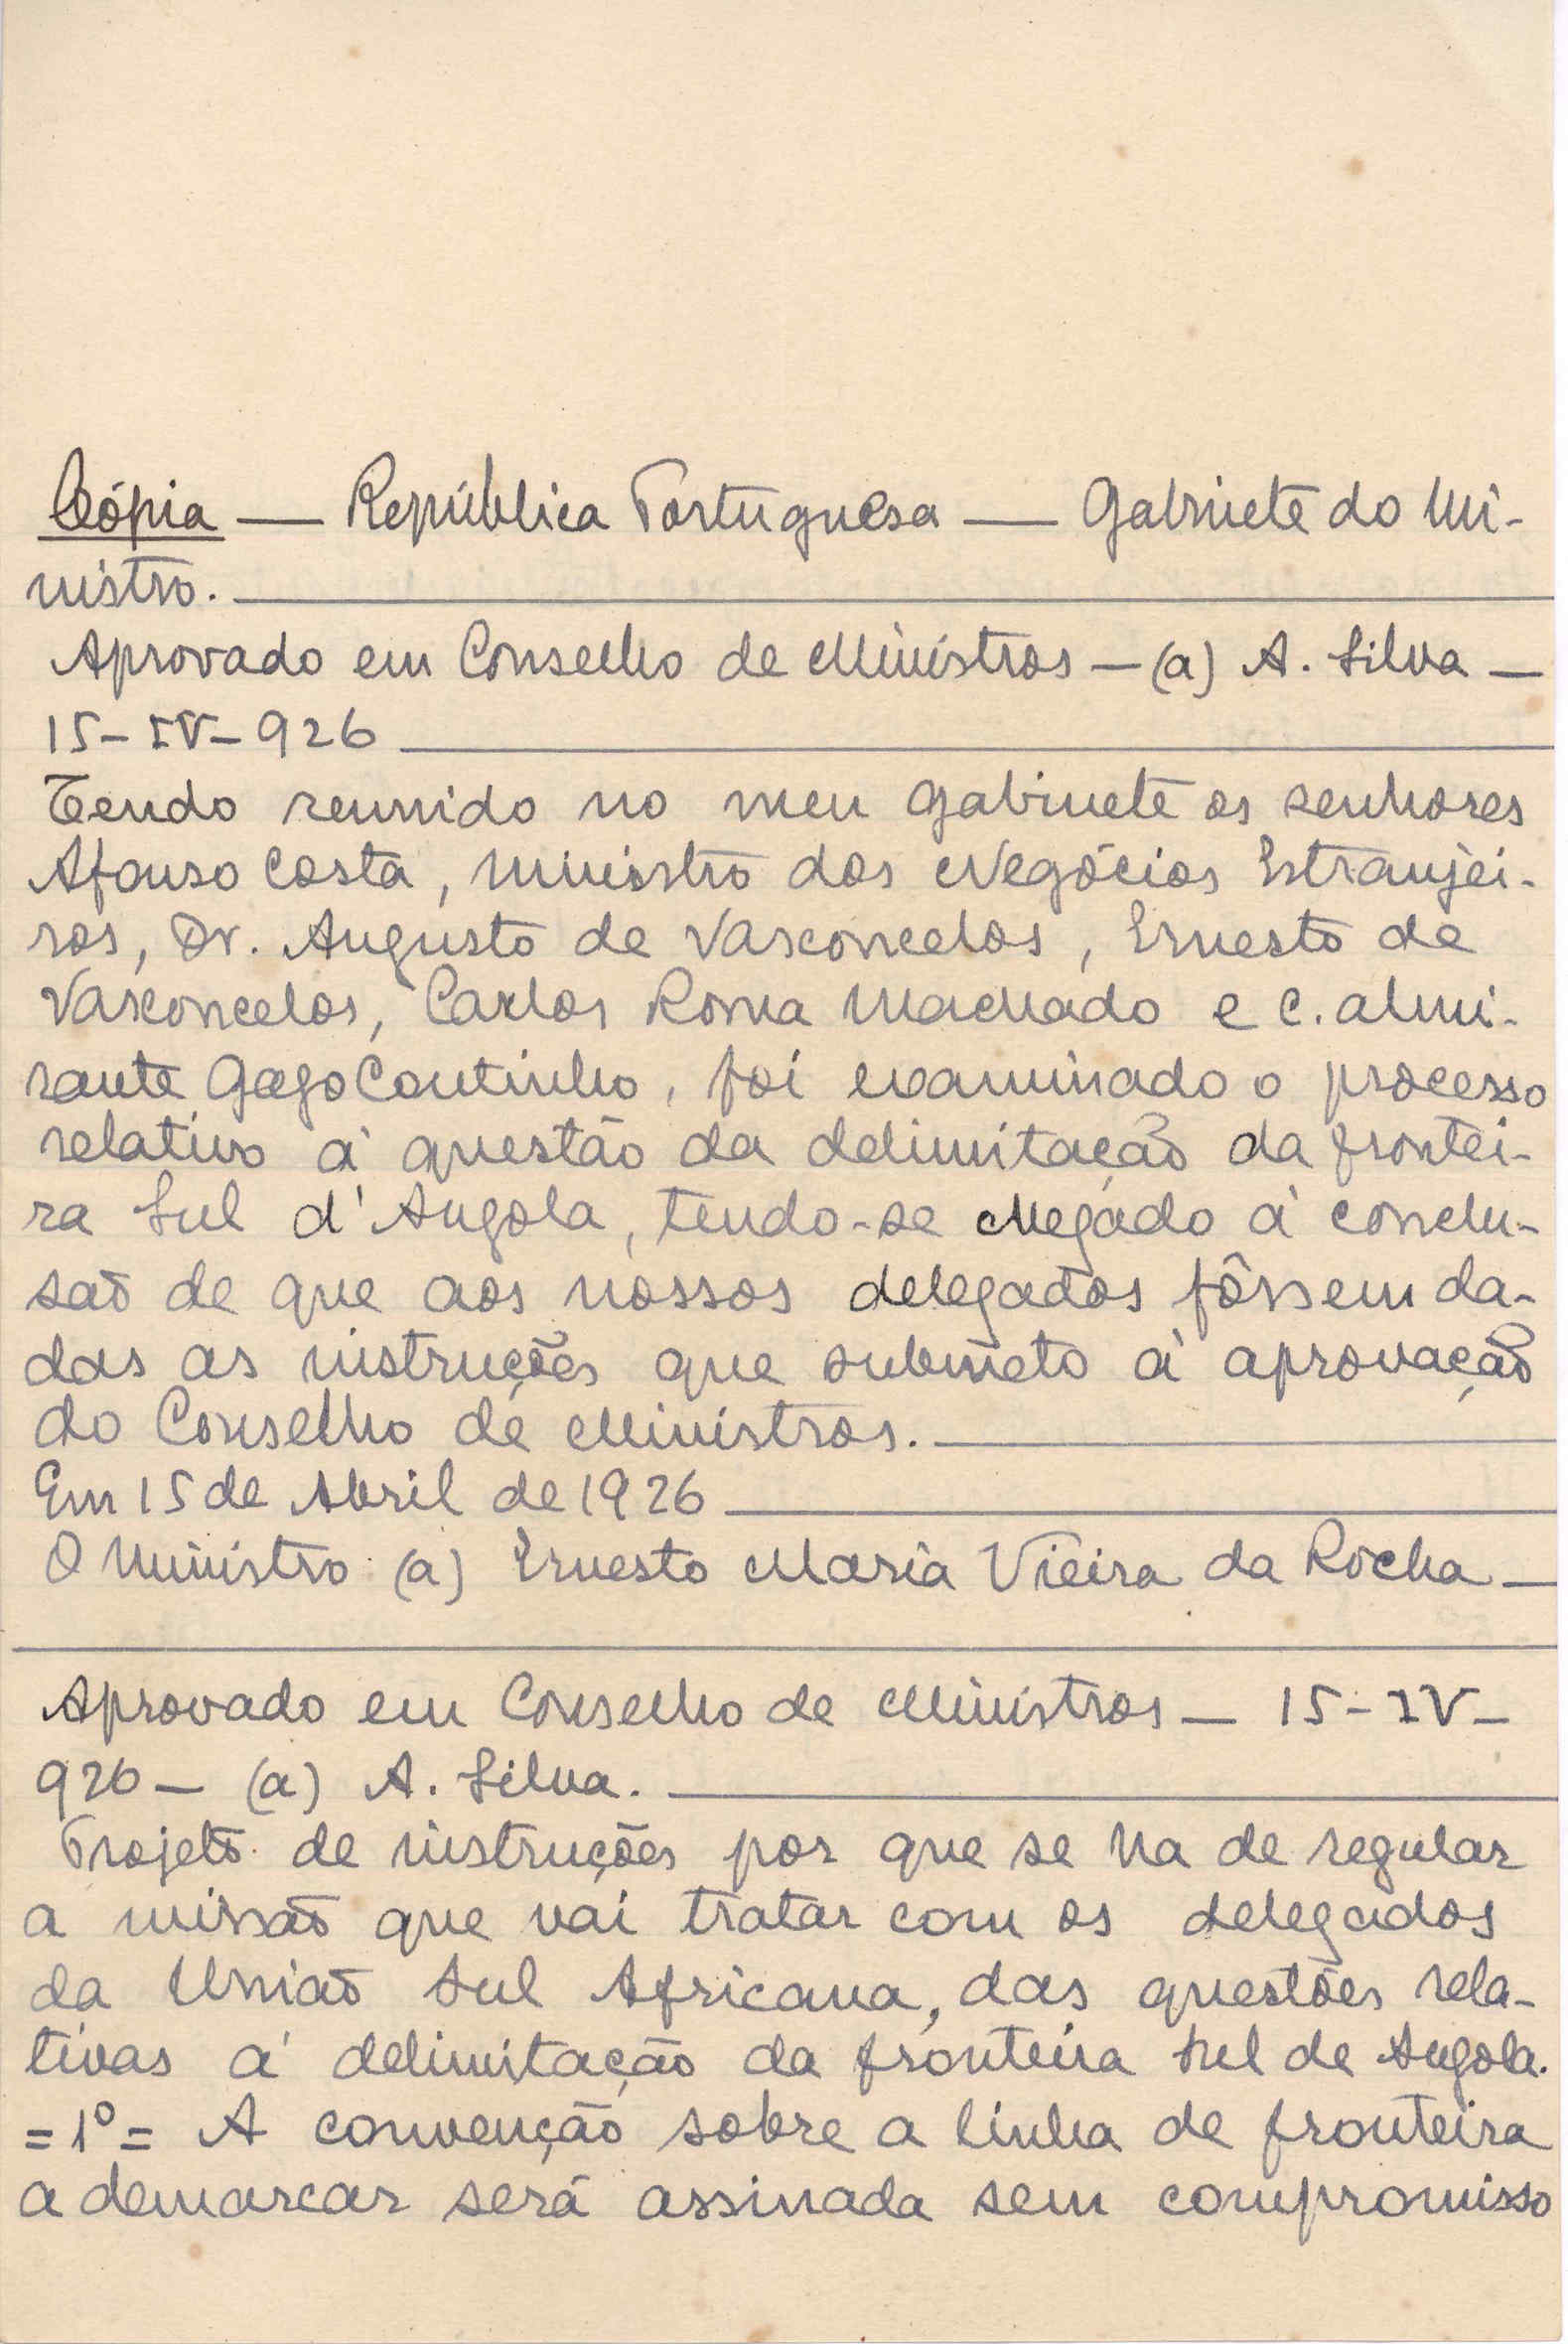 Cópia — República Portuguesa — Gabinete do Mi-
nistro.
Aprovado em Conselho de Ministros — (a) A. Silva —
15-IV-926
Tendo reunido no meu gabinete os senhores
Afonso Costa, ministro dos Negócios Estranjei-
ros, Dr. Augusto de Vasconcelos, Ernesto de
Vasconcelos, Carlos Roma Machado e c. almi-
rante Gago Coutinho, foi examinado o processo
relativo á questão da delimitação da frontei-
ra Sul d'Angola, tendo-se chegado á conclu-
saõ de que aos nossos delegados fôssem da-
das as instruções que submeto á aprovação
do Conselho de Ministros.
Em 15 de Abril de 1926
O Ministro (a) Ernesto Maria Vieira da Rocha —
Aprovado em Conselho de Ministros — 15-IV-
926 — (a) A. Silva.
Projeto de instruções por que se ha de regular
a missaõ que vai tratar com os delegados
da Uniaõ Sul Africana, das questões rela-
tivas á delimitação da fronteira sul de Angola.
=1º= A convenção sobre a linha de fronteira
a demarcar será assinada sem compromisso